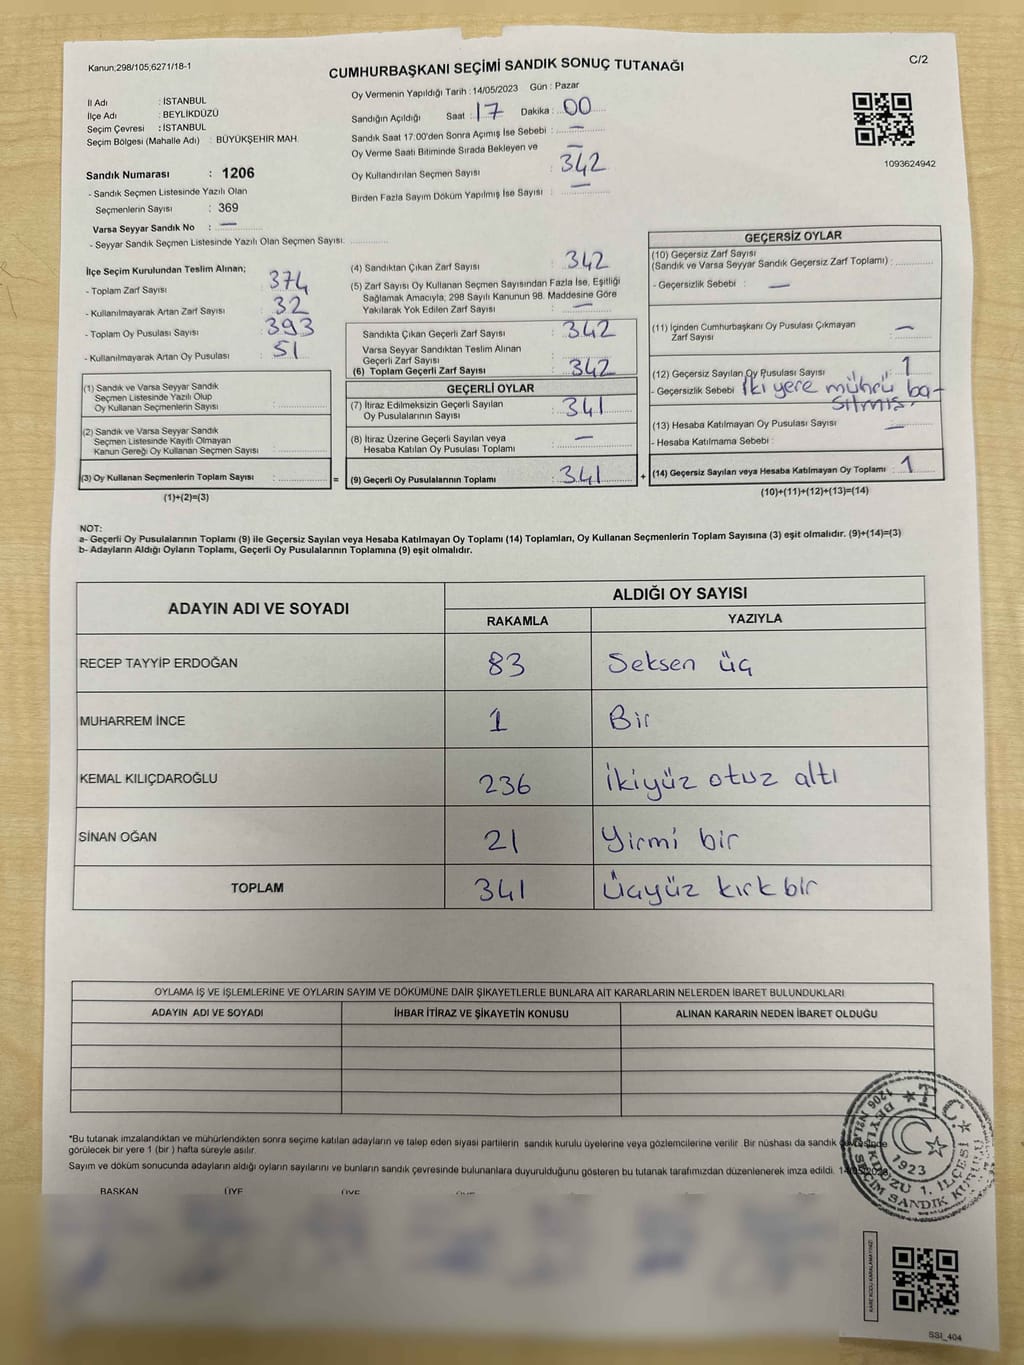 Kanun,298/105,6271/18-1
C/2
CUMHURBAŞKANI SEÇİMİ SANDIK SONUÇ TUTANAĞI
İl Adı : İSTANBUL
İlçe Adı : BEYLİKDÜZÜ
Seçim Çevresi : İSTANBUL
Seçim Bölgesi (Mahalle Adı) : BÜYÜKŞEHİR MAH.
Sandık Numarası : 1206
- Sandık Seçmen Listesinde Yazılı Olan
Seçmenlerin Sayısı : 369
Varsa Seyyar Sandık No : —
- Seyyar Sandık Seçmen Listesinde Yazılı Olan Seçmen Sayısı: ..............
Oy Vermenin Yapıldığı Tarih : 14/05/2023 Gün : Pazar
Sandığın Açıldığı Saat : 17 Dakika : 00
Sandık Saat 17:00'den Sonra Açımış İse Sebebi : —
Oy Verme Saati Bitiminde Sırada Bekleyen ve —
Oy Kullandırılan Seçmen Sayısı : 342
Birden Fazla Sayım Döküm Yapılmış İse Sayısı : —
1093624942
İlçe Seçim Kurulundan Teslim Alınan;
- Toplam Zarf Sayısı : 374
- Kullanılmayarak Artan Zarf Sayısı : 32
- Toplam Oy Pusulası Sayısı : 393
- Kullanılmayarak Artan Oy Pusulası : 51
(1) Sandık ve Varsa Seyyar Sandık
Seçmen Listesinde Yazılı Olup
Oy Kullanan Seçmenlerin Sayısı : ..............
(2) Sandık ve Varsa Seyyar Sandık
Seçmen Listesinde Kayıtlı Olmayan
Kanun Gereği Oy Kullanan Seçmen Sayısı : ..............
(3) Oy Kullanan Seçmenlerin Toplam Sayısı : .............. =
(1)+(2)=(3)
(4) Sandıktan Çıkan Zarf Sayısı : 342
(5) Zarf Sayısı Oy Kullanan Seçmen Sayısından Fazla İse, Eşitliği
Sağlamak Amacıyla; 298 Sayılı Kanunun 98. Maddesine Göre
Yakılarak Yok Edilen Zarf Sayısı : —
Sandıkta Çıkan Geçerli Zarf Sayısı : 342
Varsa Seyyar Sandıktan Teslim Alınan
Geçerli Zarf Sayısı : ..............
(6) Toplam Geçerli Zarf Sayısı : 342
GEÇERLİ OYLAR
(7) İtiraz Edilmeksizin Geçerli Sayılan
Oy Pusulalarının Sayısı : 341
(8) İtiraz Üzerine Geçerli Sayılan veya
Hesaba Katılan Oy Pusulası Toplamı : —
(9) Geçerli Oy Pusulalarının Toplamı : 341 +
GEÇERSİZ OYLAR
(10) Geçersiz Zarf Sayısı
(Sandık ve Varsa Seyyar Sandık Geçersiz Zarf Toplamı) : ..............
- Geçersizlik Sebebi : —
(11) İçinden Cumhurbaşkanı Oy Pusulası Çıkmayan
Zarf Sayısı : —
(12) Geçersiz Sayılan Oy Pusulası Sayısı : 1
- Geçersizlik Sebebi : İki yere mührü ba-
sılmış.
(13) Hesaba Katılmayan Oy Pusulası Sayısı : —
- Hesaba Katılmama Sebebi :
(14) Geçersiz Sayılan veya Hesaba Katılmayan Oy Toplamı : 1
(10)+(11)+(12)+(13)=(14)
NOT:
a- Geçerli Oy Pusulalarının Toplamı (9) ile Geçersiz Sayılan veya Hesaba Katılmayan Oy Toplamı (14) Toplamları, Oy Kullanan Seçmenlerin Toplam Sayısına (3) eşit olmalıdır. (9)+(14)=(3)
b- Adayların Aldığı Oyların Toplamı, Geçerli Oy Pusulalarının Toplamına (9) eşit olmalıdır.
ADAYIN ADI VE SOYADI ALDIĞI OY SAYISI
RAKAMLA YAZIYLA
RECEP TAYYİP ERDOĞAN 83 Seksen üç
MUHARREM İNCE 1 Bir
KEMAL KILIÇDAROĞLU 236 İkiyüz otuz altı
SİNAN OĞAN 21 Yirmi bir
TOPLAM 341 Üçyüz kırk bir
OYLAMA İŞ VE İŞLEMLERİNE VE OYLARIN SAYIM VE DÖKÜMÜNE DAİR ŞİKAYETLERLE BUNLARA AİT KARARLARIN NELERDEN İBARET BULUNDUKLARI
ADAYIN ADI VE SOYADI İHBAR İTİRAZ VE ŞİKAYETİN KONUSU ALINAN KARARIN NEDEN İBARET OLDUĞU
*Bu tutanak imzalandıktan ve mühürlendikten sonra seçime katılan adayların ve talep eden siyasi partilerin sandık kurulu üyelerine veya gözlemcilerine verilir. Bir nüshası da sandık çevresinde
görülecek bir yere 1 (bir ) hafta süreyle asılır.
Sayım ve döküm sonucunda adayların aldığı oyların sayılarını ve bunların sandık çevresinde bulunanlara duyurulduğunu gösteren bu tutanak tarafımızdan düzenlenerek imza edildi. 14/05/2023
BAŞKAN ÜYE ÜYE
T.C.
BEYLİKDÜZÜ 1. İLÇESİ
1206
SEÇİM SANDIK KURULU
1923
KARE KODU KARALAMAYINIZ!
SSI_404